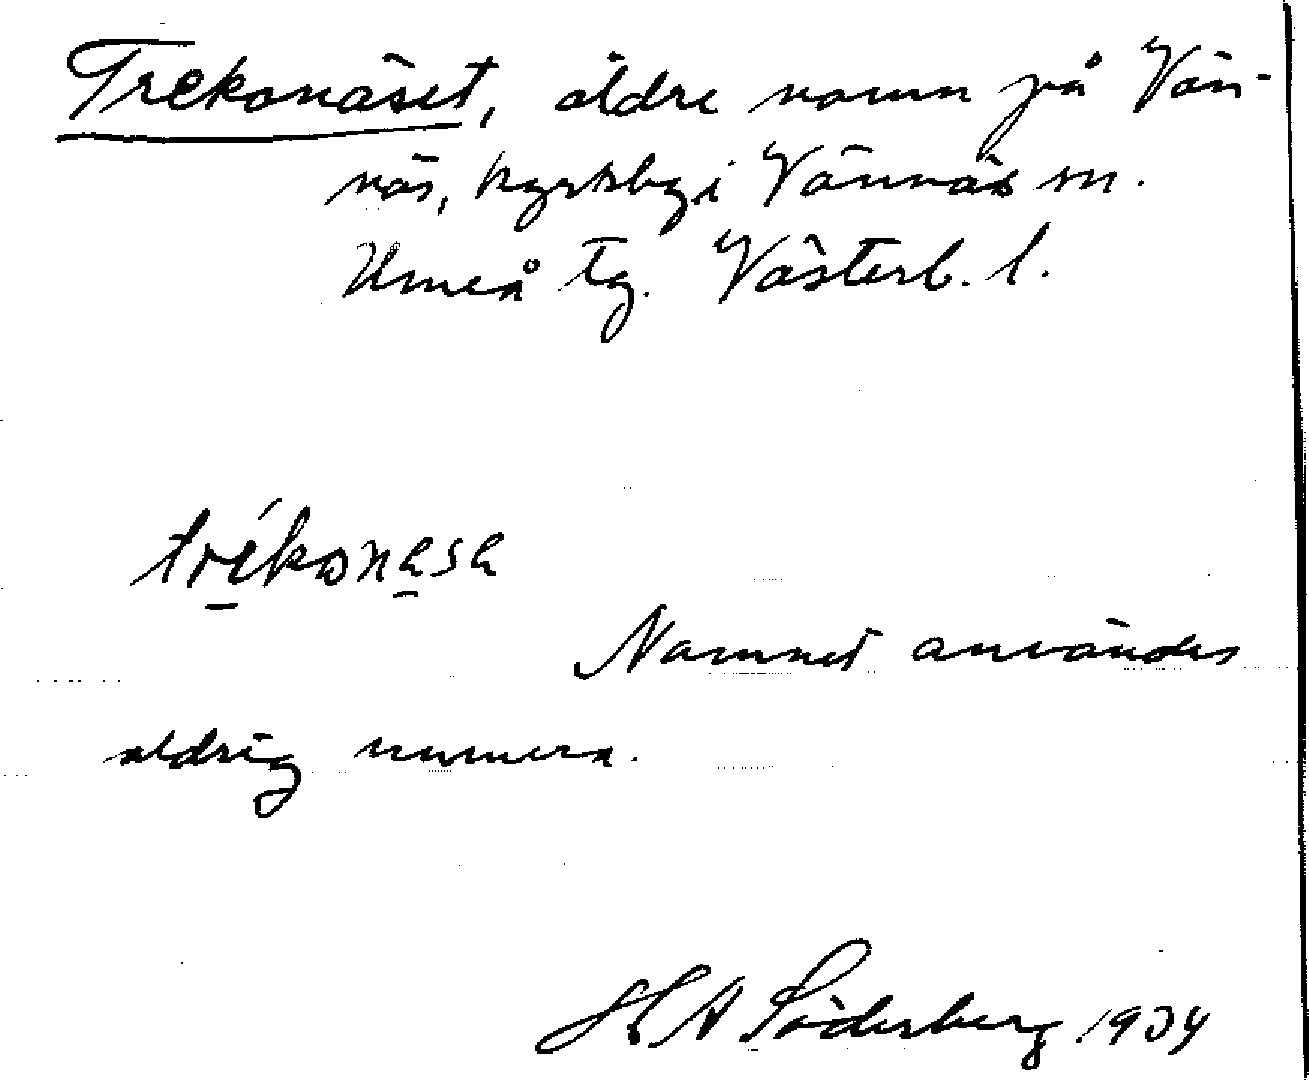 Trekonäset, äldre namn på Vän-
näs, kyrkby i Vännäs sn.
Umeå tg. Västerb. l.
trékonäsa
Namnet användes
aldrig numera.
H A Söderberg 1934